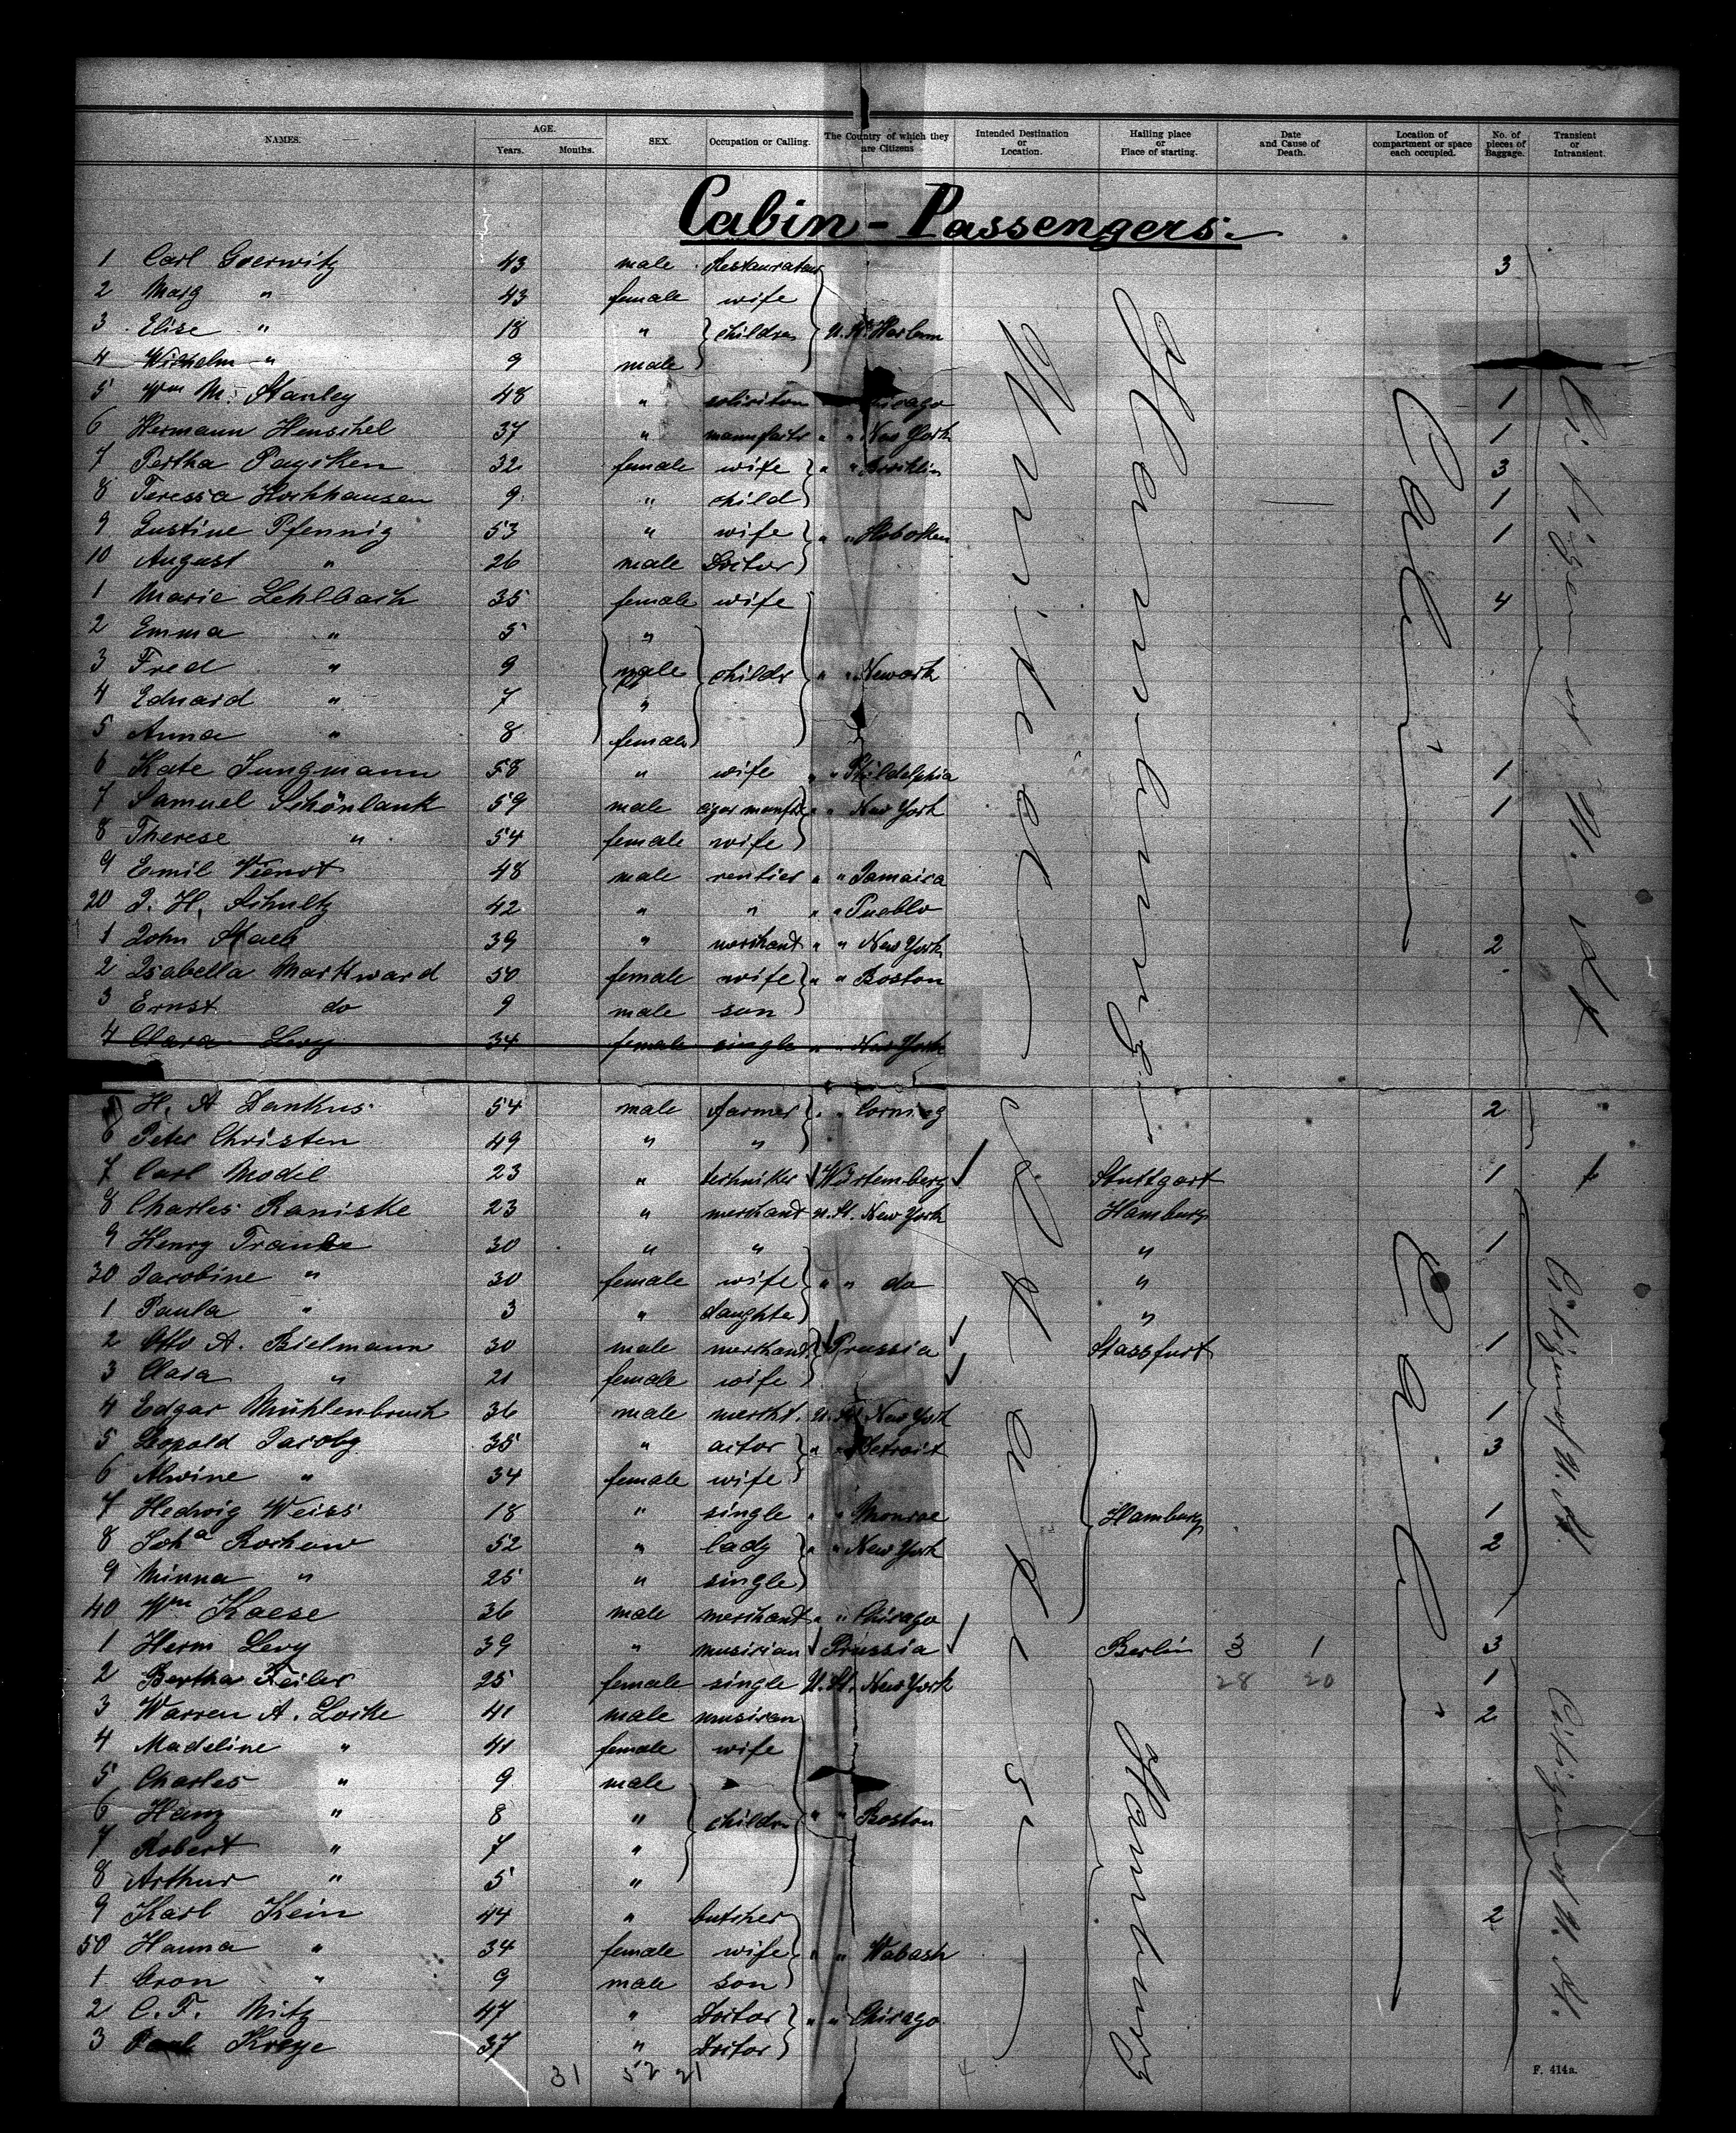 NAMES. AGE. Years. Months. SEX. Occupation or Calling. The Country of which they are Citizens Intended Destination or Location. Hailing place or Place of starting. Date and Cause of Death. Location of compartment or space each occupied. No. of pieces of Baggage. Transient or Intransient.
Cabin-Passengers.
1 Carl Goerwitz 43 male Restaurateur 3
2 Marg " 43 female wife
3 Elise " 18 " children U. St. Harlem
4 Wilhelm " 9 male
5 Wm M. Stanley 48 " Chicago 1
6 Hermann Henschel 37 " " " New York 1
7 Bertha Paysken 32 female wife " " Brooklin 3
8 Teressa Hochhausen 9 " child 1
9 Gustine Pfennig 53 " wife " " Hoboken 1
10 August " 26 male Doctor
1 Marie Lehlbach 35 female wife 4
2 Emma " 5 "
3 Fred " 9 male childr " " Newark
4 Eduard " 7 "
5 Anna " 8 female
6 Kate Jungmann 58 " wife " " Philadelphia 1
7 Samuel Schönlank 59 male cigar manftr " " New York 1
8 Therese " 54 female wife
9 Emil Vienot 48 male rentier " " Jamaica
20 J. H. Schultz 42 " " " " Pueblo
1 John Staeb 39 " merchant " " New York 2
2 Isabella Markward 50 female wife " " Boston
3 Ernst do 9 male son
4 Clara Levy 34 female single " " New York
5 H. A Dankus 54 male farmer " " Corning 2
6 Peter Christen 49 " "
7 Carl Model 23 " techniker Würtemberg Stuttgart 1
8 Charles Raniske 23 " merchant U. St. New York Hamburg
9 Henry Franke 30 " " " 1
30 Jacobine " 30 female wife " " do "
1 Paula " 3 " daughter "
2 Otto A. Bielmann 30 male merchant Prussia Stassfurt 1
3 Clara " 21 female wife
4 Edgar Mühlenbruch 36 male mercht. U. St. New York 1
5 Leopold Jacoby 35 " actor " " Detroit 3
6 Alwine " 34 female wife
7 Hedwig Weiss 18 " single " " Monroe Hamburg 1
8 Joha Rochow 52 " lady " " New York 2
9 Minna " 25 " single
40 Wm Kaese 36 male merchant " " Chicago 1
1 Herm Levy 39 " musician Prussia Berlin 3 1 3
2 Bertha Feiler 25 female single U. St. New York 28 20 1
3 Warren A. Locke 41 male musican 2
4 Madeline " 41 female wife
5 Charles " 9 male
6 Hany " 8 " childrn " " Boston
7 Robert " 7 "
8 Arthur " 5 "
9 Karl Kein 44 " butcher 2
50 Hanna " 34 female wife " " Wabash
1 Aron " 9 male son
2 C. F. Nitz 47 " Doctor " " Chicago
3 Paul Kreye 37 " Doctor
31 52 21 4
United States
Hamburg
Cabin
Citizen of U. St.
Cabin
Citizens of U. St.
Hamburg
Citizen of U. St.
F. 414a.